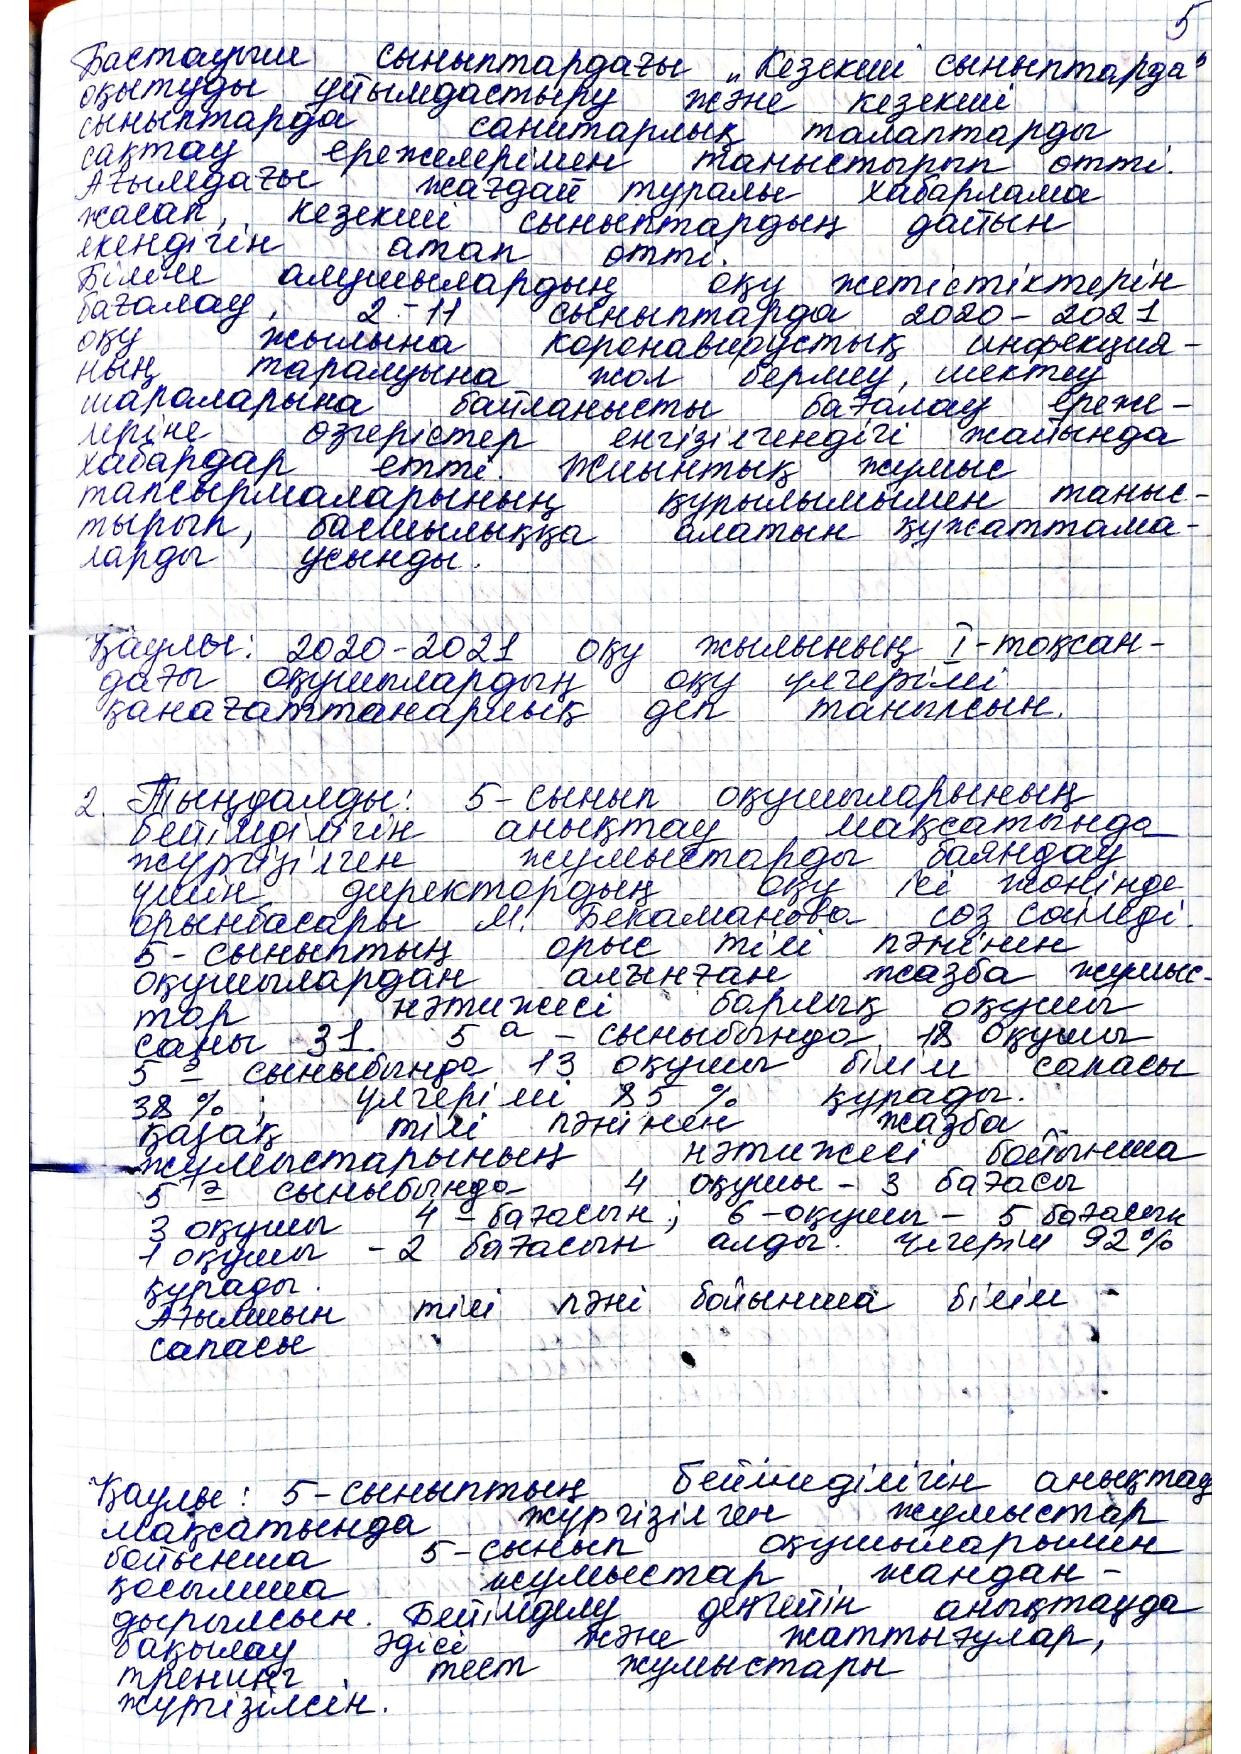 5
Бастауыш сыныптардағы „Кезекші сыныптарда"
оқытуды ұйымдастыру және кезекші
сыныптарда санитарлық талаптарды
сақтау ережелерімен таныстырып өтті.
Ағымдағы жағдай туралы хабарлама
жасап, кезекші сыныптардың дайын
екендігін атап өтті.
Білім алушылардың оқу жетістіктерін
бағалау, 2-11 сыныптарда 2020-2021
оқу жылына коронавирустық инфекция-
ның таралуына жол бермеу, шектеу
шараларына байланысты бағалау ереже-
леріне өзгерістер енгізілгендігі жайында
хабардар етті. Жиынтық жұмыс
тапсырмаларының құрылымымен таныс-
тырып, басшылыққа алатын құжаттама-
ларды ұсынды.
Қаулы: 2020-2021 оқу жылының I-тоқсан-
дағы оқушылардың оқу үлгерімі
қанағаттанарлық деп танылсын.
2. Тыңдалды: 5-сынып оқушыларының
бейімділігін анықтау мақсатында
жүргізілген жұмыстарды баяндау
үшін директордың оқу ісі жөнінде
орынбасары М. Бекаманова сөз сөйледі.
5-сыныптың орыс тілі пәнінен
оқушылардан алынған жазба жұмыс-
тар нәтижесі барлық оқушы
саны 31. 5 а - сыныбында 18 оқушы
5 ә - сыныбында 13 оқушы білім сапасы
38 % ; үлгерімі 85 % құрады.
қазақ тілі пәнінен жазба
жұмыстарының нәтижесі бойынша
5 ә сыныбында 4 оқушы - 3 бағасы
3 оқушы 4 - бағасын; 6 -оқушы - 5 бағасын
1 оқушы - 2 бағасын алды. Үлгерім 92%
құрады.
Ағылшын тілі пәні бойынша білім
сапасы
Қаулы: 5-сыныптың бейімділігін анықтау
мақсатында жүргізілген жұмыстар
бойынша 5-сынып оқушыларымен
қосымша жұмыстар жандан-
дырылсын. Бейімделу деңгейін анықтауда
бақылау әдісі және жаттығулар,
тренинг тест жұмыстары
жүргізілсін.